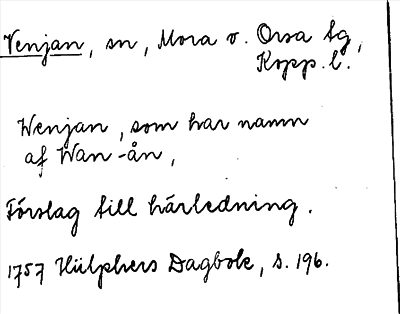 Venjan, sn, Mora o. Orsa tg,
Kopp. l.
Wenjan, som har namn
af Wan-ån,
Förslag till härledning.
1757 Hülphers Dagbok, s. 196.